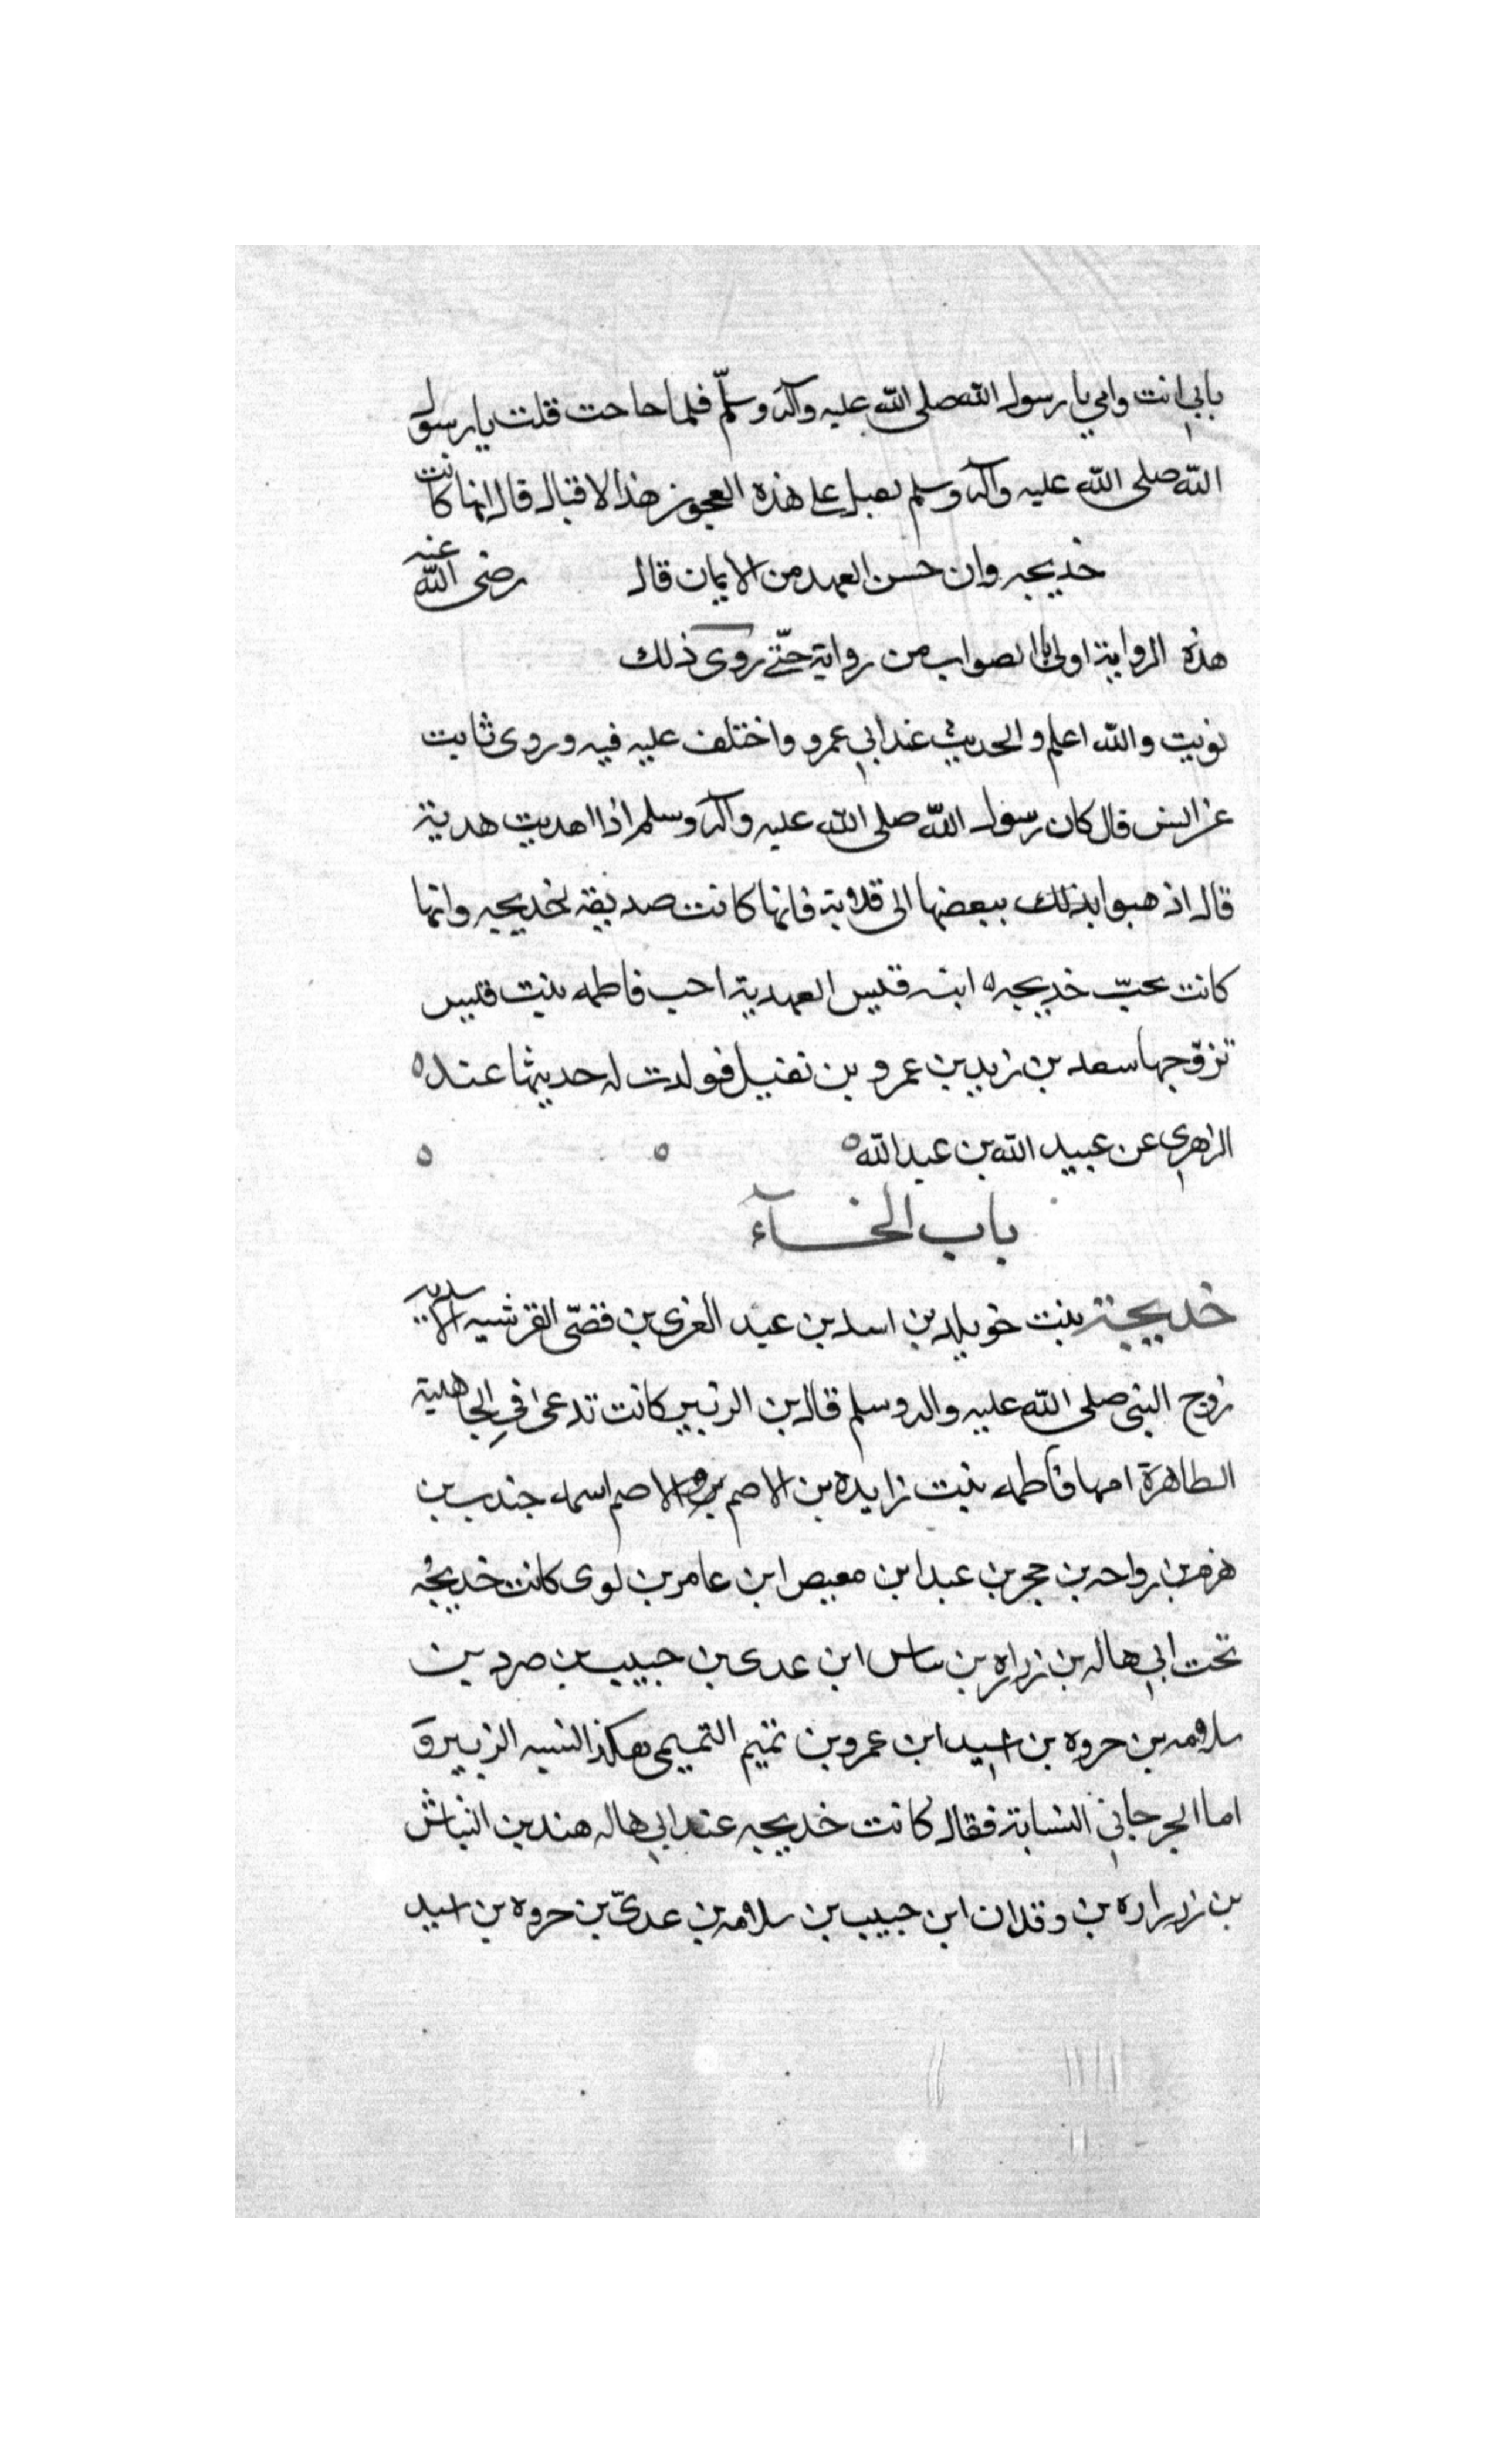 بابي انت وامي يا رسول الله صلى الله عليه وآله وسلّم فلما حاحت قلت يا رسول
الله صلى الله عليه وآله وسلم تقبل على هذه العجوز هذا لاقبال قال انها كانت
خديجه وان حسن العهد من الايمان قال رضى الله عنه
هذه الرواية اولى باالصواب من رواية حتّى روى ذلك
نويت والله اعلم والحديث عند ابي عمرو واختلف عليه فيه وروى ثابت
عن انس قال كان رسول الله صلى الله عليه وآله وسلم اذا اهديت هدية
قال اذهبوا بذلك ببعضها الى قلابة فانها كانت صديقة لخديجه وانها
كانت تحبّ خديجه ه ابنه قيس العهدية احب فاطمه بنت قيس
تزوّجها سعد بن زيد بن عمرو بن نفيل فولدت له حديثها عند ه
الزهري عن عبيد الله بن عبد الله ه ه ه
باب الخــاء
خديجة بنت خويلد بن اسد بن عبد العزى بن قصّى القرشيه الاسديه
زوج النبى صلى الله عليه واله وسلم قال بن الزبير كانت تدعى في الجاهلية
الطاهرة امها فاطمه بنت زايدة بن الاصم والاصم اسمه جندب بن
هرم بن رواحه بن حجر بن عبد ابن معيص ابن عامر بن لوى كانت خديجه
تحت ابي هاله بن زرارة بن ساس ابن عدى بن حبيب بن صرد بن
سلامه بن حروه بن اسيد ابن عمرو بن تميم التميمى هكذا نسبه الزبير و
اما الجرجاني النسابة فقال كانت خديجه عند ابي هاله هند بن النباش
بن زرارة بن وقدان ابن حبيب بن سلامه بن عدىّ بن حروه بن اسيد